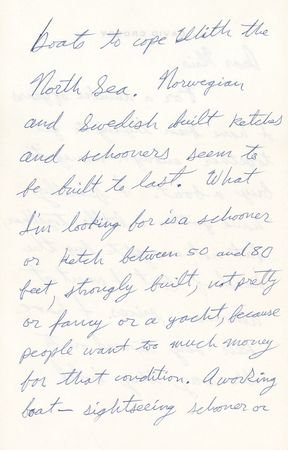 boats to cope with the
North Sea. Norwegian
and Swedish built ketches
and schooners seem to
be built to last. What
I'm looking for is a schooner
or ketch between 50 and 80
feet, strongly built, not pretty
or fancy or a yacht, because
people want too much money
for that condition. A working
boat — sightseeing schoner or